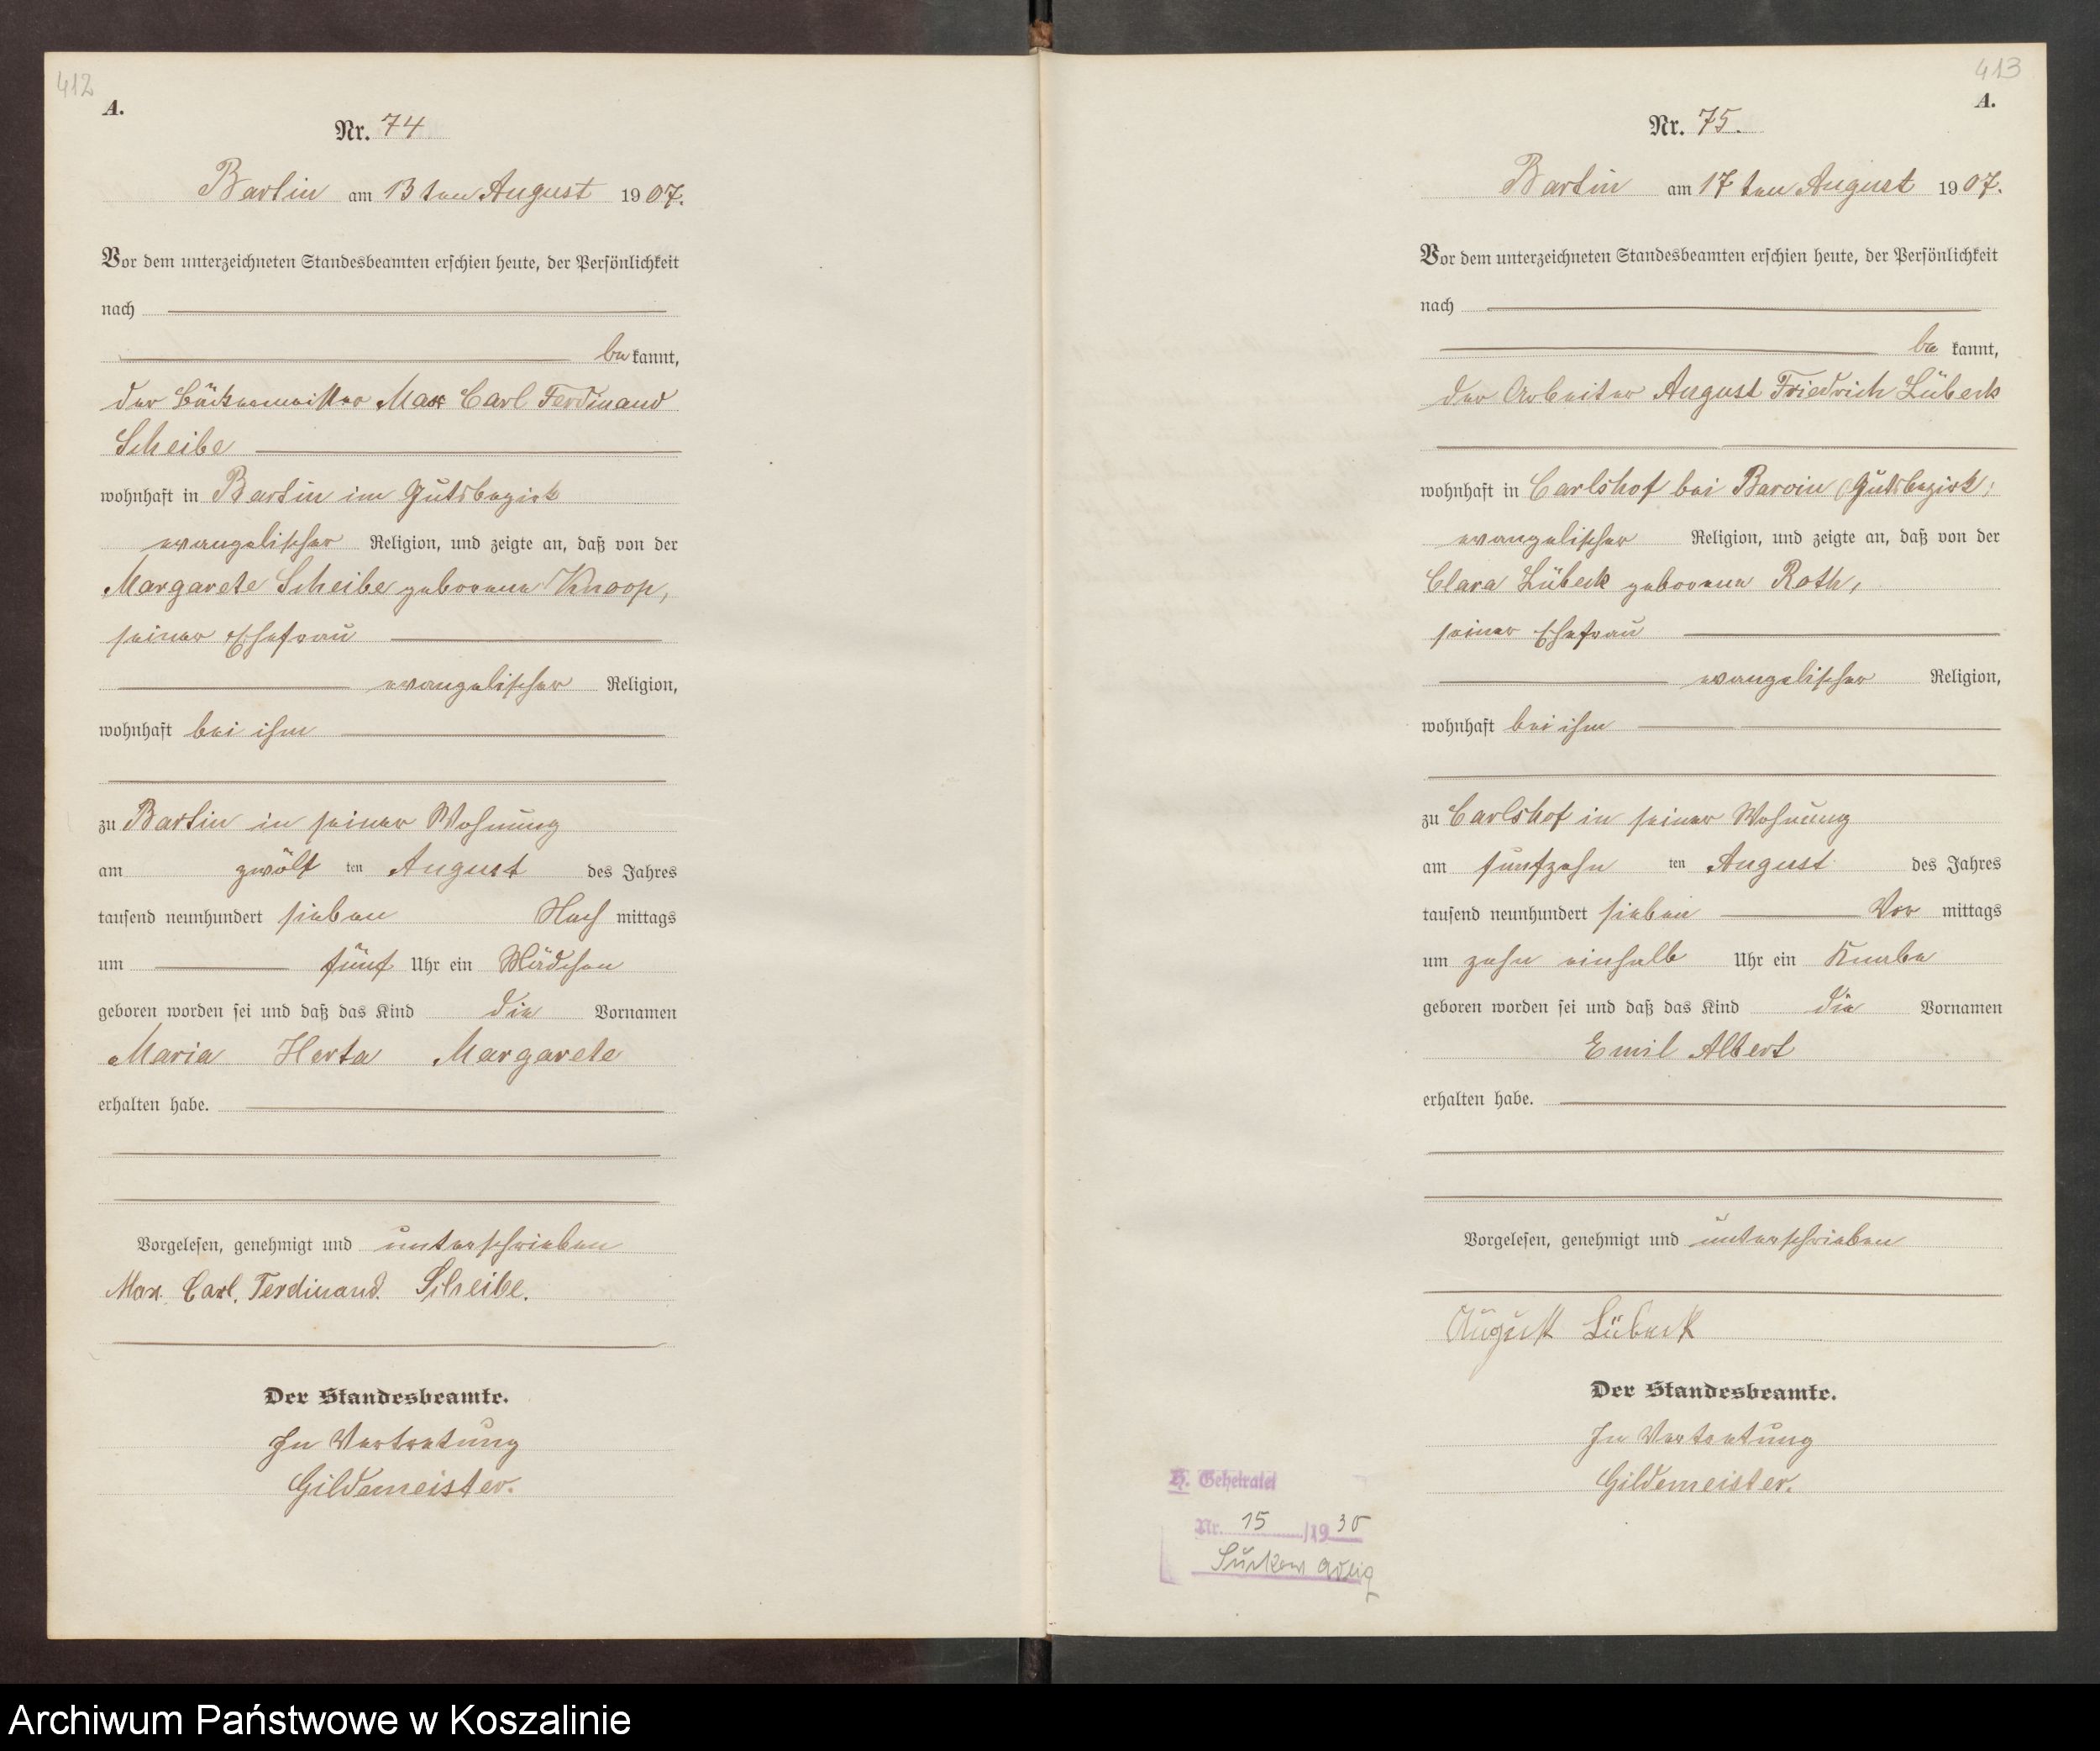 412
A.
Nr. 74
Bartin am 13ten August 1907.
Vor dem unterzeichneten Standesbeamten erschien heute, der Persönlichkeit
nach
bekannt,
der Bäckermeister Max Carl Ferdinand
Scheibe
wohnhaft in Bartin im Gutsbezirk
evangelischer Religion, und zeigte an, daß von der
Margarete Scheibe geborene Knoop,
seiner Ehefrau
evangelischer Religion,
wohnhaft bei ihm
zu Bartin in seiner Wohnung
am zwölf ten August des Jahres
tausend neunhundert sieben Nach mittags
um fünf Uhr ein Mädchen
geboren worden sei und daß das Kind die Vornamen
Maria Herta Margarete
erhalten habe.
Vorgelesen, genehmigt und unterschrieben
Max. Carl. Ferdinand. Scheibe.
Der Standesbeamte.
In Vertretung
Gildemeister.
413
A.
Nr. 75.
Bartin am 17ten August 1907.
Vor dem unterzeichneten Standesbeamten erschien heute, der Persönlichkeit
nach
be kannt,
der Arbeiter August Friedrich Lübeck
wohnhaft in Carlshof bei Barvin (Gutsbezirk)
evangelischer Religion, und zeigte an, daß von der
Clara Lübeck geborene Roth,
seiner Ehefrau
evangelischer Religion,
wohnhaft bei ihm
zu Carlshof in seiner Wohnung
am fünfzehn ten August des Jahres
tausend neunhundert sieben Vor mittags
um zehn einhalb Uhr ein Knabe
geboren worden sei und daß das Kind die Vornamen
Emil Albert
erhalten habe.
Vorgelesen, genehmigt und unterschrieben
August Lübeck
Der Standesbeamte.
In Vertretung
Gildemeister.
H. Geheiratet
Nr. 15 /1930
Suckow adlig
Archiwum Państwowe w Koszalinie